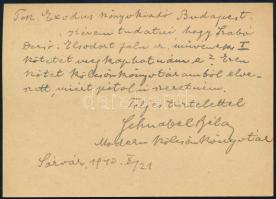 Tek. Exodus Könyvkiadó Budapest.
Kérem tudatni hogy Szabó
Dezső: Elsodort falu c. művének I
kötetét megkaphatnám e? Ezen
kötet kölcsönkönyvtáramból elve-
szett, miért pótolni szeretném.
Telj. tisztelettel
Schnabel Béla
Modern Kölcsönkönyvtár
Sárvár, 1940. X/21